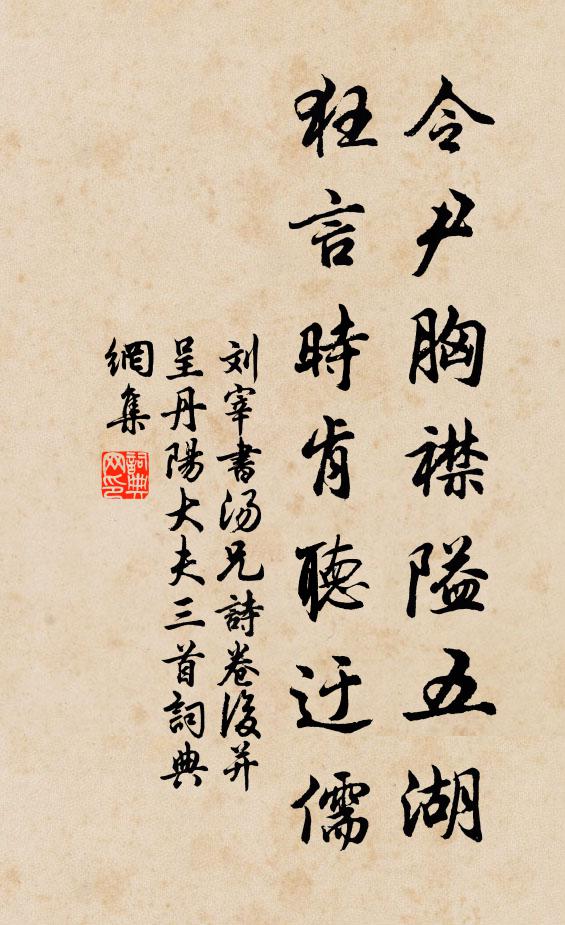 令尹胸襟隘五湖
狂言時肯聽迂儒
刘宰書汤兄詩卷後并
呈丹陽大夫三首詞典
網集
詞典
网印